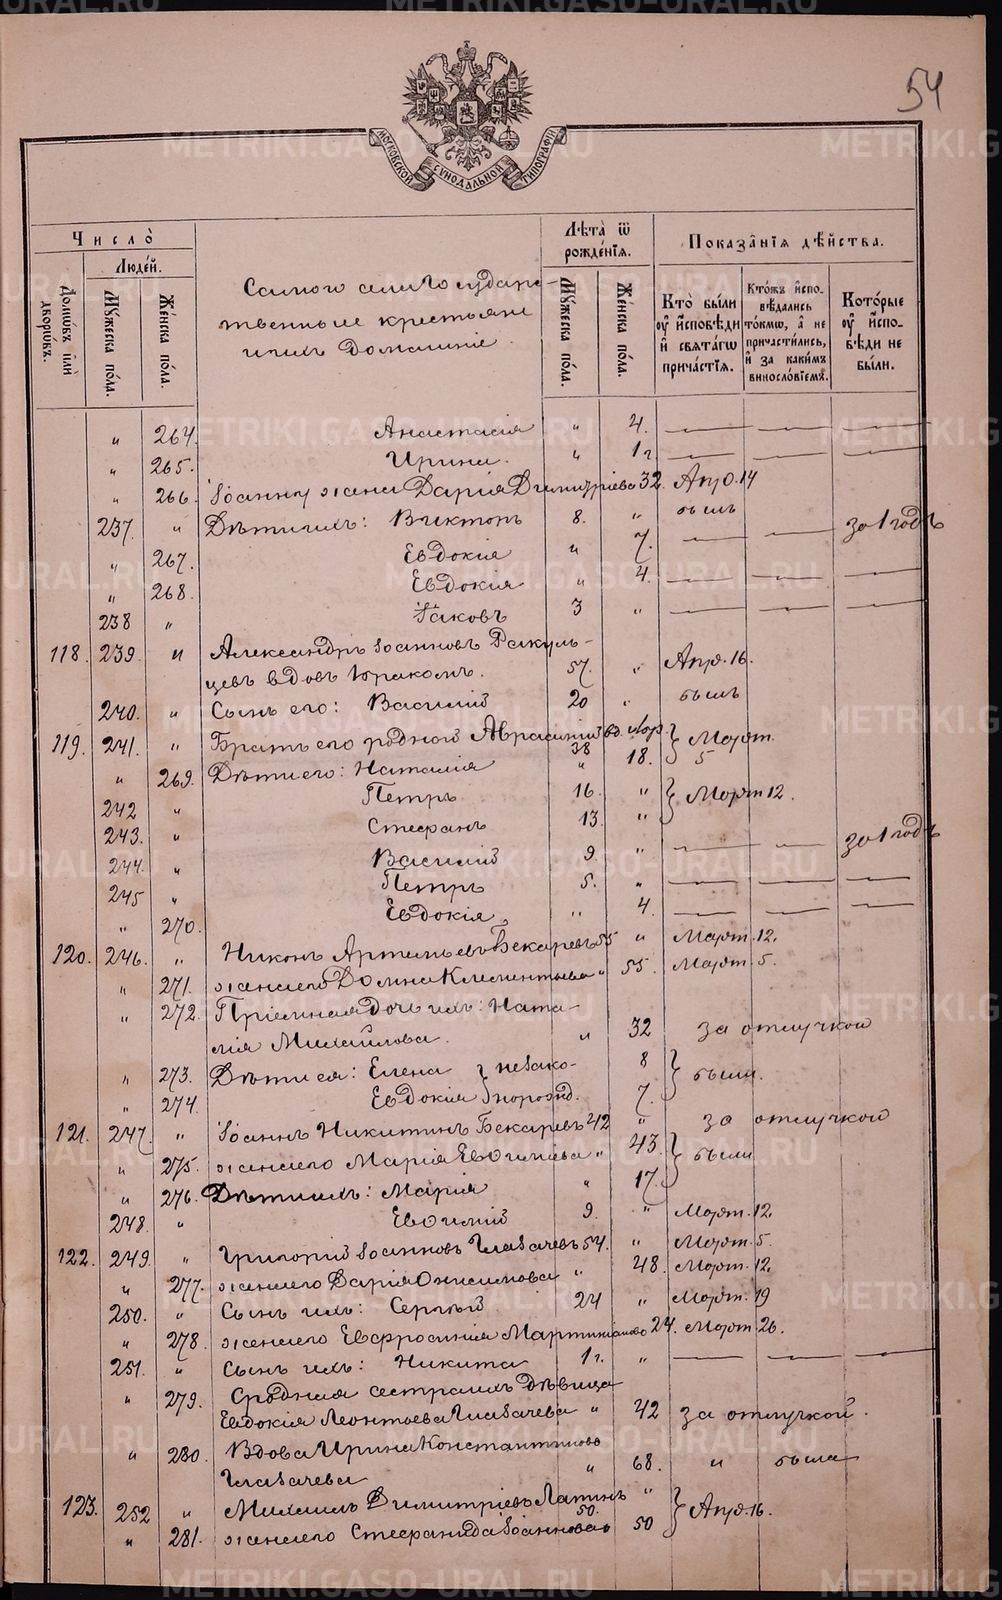 54
МОСКОВСКОЙ СѴНОДАЛЬНОЙ ТИПОГРАФІИ
Число̀
Людей.
Домѡвъ и҆лѝ дворѡвъ.
Мꙋжеска по́ла.
Же́нска по́ла.
Самого села Государс-
твенные крестьяне
и ихъ домашніе.
Лѣта̀ ѿ рождє́нїѧ.
Мꙋ́жеска по́ла.
Же́нска по́ла.
Показа̑нїѧ дѣ́йства.
Кто̀ бы́ли оу҆ и҆сповѣ́ди и҆ свѧта́гѡ прича́стїѧ.
Кто́жъ и҆спо-вѣ́дались то́кмѡ, а҆ не причасти́лись, и҆ за каки́мъ винословіемъ.
Кото́рые оу҆ и҆спо-вѣди не бы́ли.
" 264. Анастасія " 4.
" 265. Ирина. " 1 г.
" 266. Іоанну жена Дарія Димитріева 32. Апр. 14
237. " Дѣти ихъ: Викторъ 8. " былъ за 1 годъ
" 267. Евдокія " 7.
" 268. Евдокія " 4.
238 " Іаковъ 3 "
118. 239. " Александръ Іоанновъ Ракуль-
цевъ вдовъ 1 бракомъ. 57. " Апр. 16.
240. " Сынъ его: Василій 20 " былъ
119. 241. " Братъ его родной Аврамій вд. 38 Март. 5
" 269. Дѣти его: Наталія " 18.
242 " Петръ 16. " Март 12.
243. " Стефанъ 13. "
244. " Василій 9. " за 1 годъ
245 " Петръ 5. "
" 270. Евдокія " 4.
120. 246. " Никонъ Артемьевъ Бекаревъ 55 " Март. 12.
" 271. жена его Домна Климентьева " 55. Март. 5.
" 272. Пріемная дочь ихъ: Ната-
лія Михайлова. " 32 за отлучкой
" 273. Дѣти ея: Елена } незако- 8 } были.
" 274. Евдокія } норожд. 7.
121. 247. " Іоаннъ Никитинъ Бекаревъ 42 " за отлучкой
" 275. жена его Марія Евѳиміева " 43. } были
" 276. Дѣти ихъ: Марія " 17.
248. " Евѳимій 9. " Март. 12.
122. 249. " Григорій Іоанновъ Глабачевъ 54. " Март. 5.
" 277. жена его Дарія Онисимова " 48. Март. 12.
250. " Сынъ ихъ: Сергѣй 24 " Март. 19
" 278. жена его Евфросинія Мартиніанова 24. Март 26.
251. " Сынъ ихъ: Никита 1 г. "
" 279. Сродная сестра ихъ дѣвица
Евдокія Леонтьева Глабачева " 42 за отлучкой.
" 280. Вдова Ирина Константинова
Глабачева " 68. " была
123. 252 " Михаилъ Димитріевъ Лапинъ 50. " } Апр. 16.
" 281. жена его Стефанида Іоаннова 50
METRIKI.GASO-URAL.RU